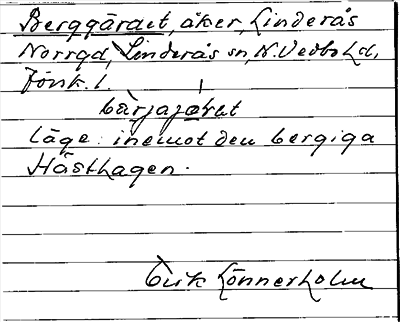 Berggärdet, åker, Linderås
Norrgd, Linderås sn, N. Vedbo hd,
Jönk. l.
bàrjajæ̀ret
läge: inemot den bergiga
Hästhagen.
Erik Lönnerholm